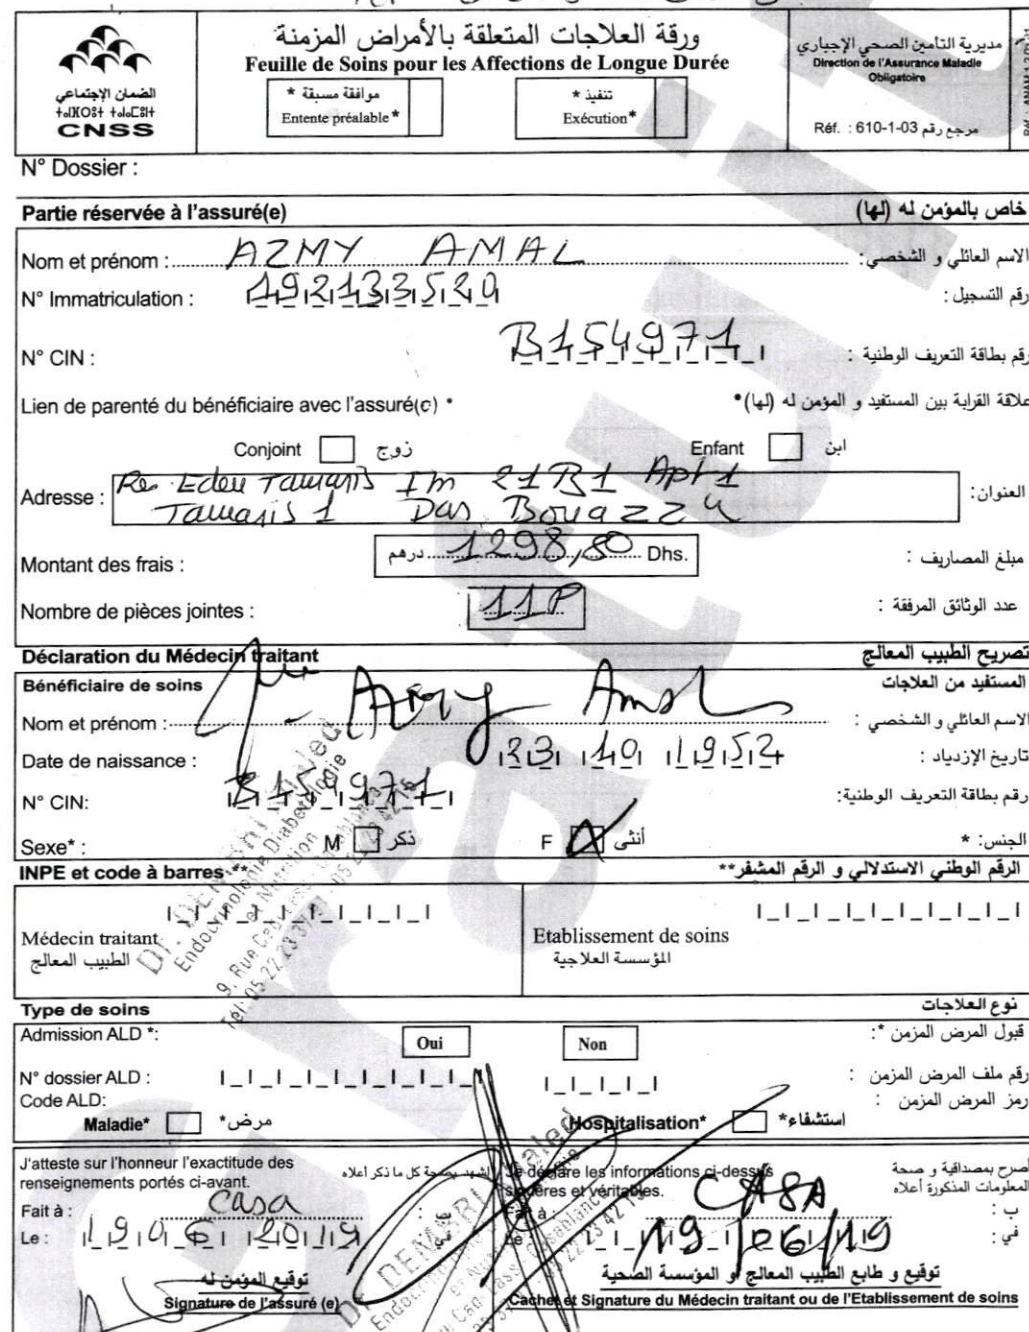 ورقة العلاجات المتعلقة بالأمراض المزمنة
Feuille de Soins pour les Affections de Longue Durée
الضمان الإجتماعي
CNSS
موافقة مسبقة *
Entente préalable *
تنفيذ *
Exécution*
مديرية التأمين الصحي الإجباري
Direction de l'Assurance Maladie
Obligatoire
Réf. : 610-1-03 مرجع رقم
N° Dossier :
Partie réservée à l'assuré(e) خاص بالمؤمن له (لها)
Nom et prénom : AZMY AMAL الاسم العائلي و الشخصي:
N° Immatriculation : رقم التسجيل :
N° CIN : B154971 رقم بطاقة التعريف الوطنية :
Lien de parenté du bénéficiaire avec l'assuré(e) * علاقة القرابة بين المستفيد و المؤمن له (لها)*
Conjoint زوج Enfant ابن
Adresse : Im 21B1 Apt 1 العنوان:
Tamaris 1
Montant des frais : 1298,80 Dhs. درهم مبلغ المصاريف :
Nombre de pièces jointes : 11P عدد الوثائق المرفقة :
Déclaration du Médecin traitant تصريح الطبيب المعالج
Bénéficiaire de soins المستفيد من العلاجات
Nom et prénom : Azmy Amal الاسم العائلي و الشخصي :
Date de naissance : 23 10 1952 تاريخ الإزدياد :
N° CIN: B154971 رقم بطاقة التعريف الوطنية:
Sexe* : M ذكر F أنثى الجنس: *
INPE et code à barres ** الرقم الوطني الاستدلالي و الرقم المشفر**
Médecin traitant
الطبيب المعالج
Etablissement de soins
المؤسسة العلاجية
Dr. DEMBRI Khaled
Endocrinologie Diabetologie
et Nutrition
Type de soins نوع العلاجات
Admission ALD *: Oui Non قبول المرض المزمن *:
N° dossier ALD : رقم ملف المرض المزمن :
Code ALD: رمز المرض المزمن :
Maladie* مرض* Hospitalisation* استشفاء*
J'atteste sur l'honneur l'exactitude des
renseignements portés ci-avant.
أشهد بصحة كل ما ذكر أعلاه
Fait à : Casa
Le : 19 06 2019
توقيع المؤمن له
Signature de l'assuré (e)
Je déclare les informations ci-dessus
sincères et véritables.
أصرح بمصداقية و صحة
المعلومات المذكورة أعلاه
Fait à : CASA ب :
Le : 19/06/19 في :
توقيع و طابع الطبيب المعالج أو المؤسسة الصحية
Cachet et Signature du Médecin traitant ou de l'Etablissement de soins